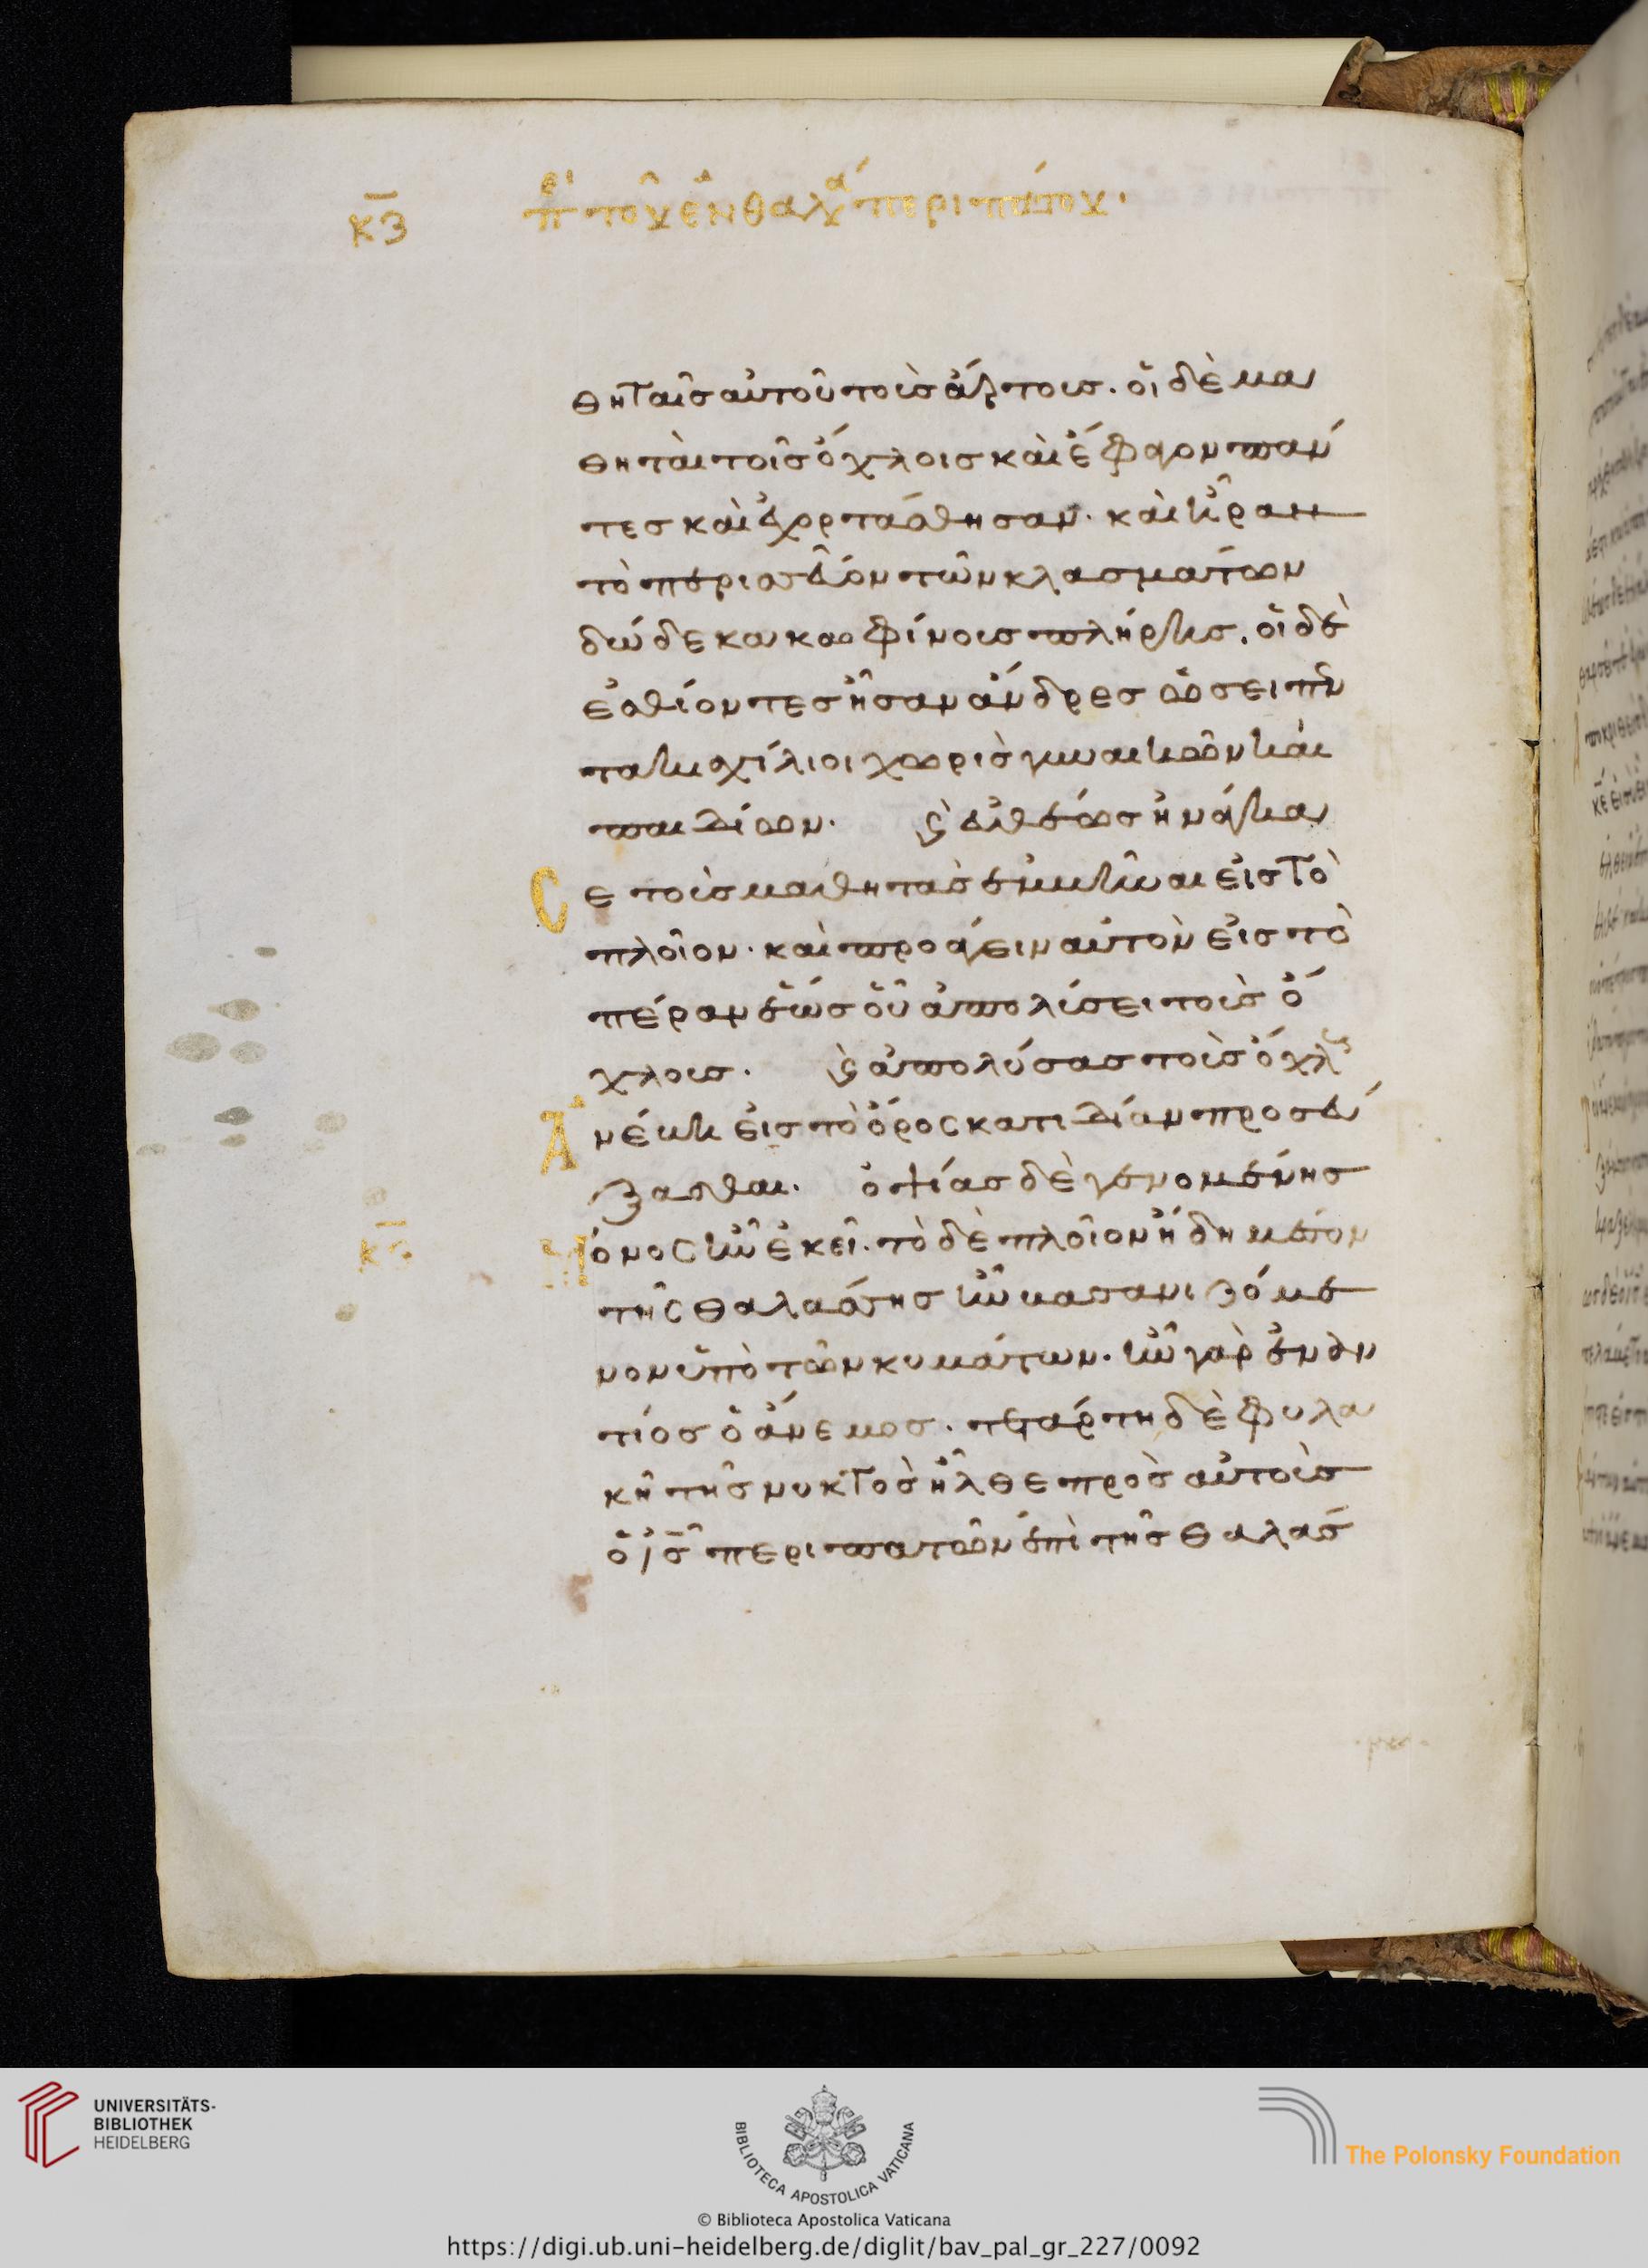 κζ περὶ τοῦ ἐν θαλ περιπάτου·
θηταῖς αὐτοῦ τοὺς ἄρτους. οἱ δὲ μα
θηταὶ τοῖς ὄχλοις καὶ ἔφαγον παν
τες καὶ ἐχορτάσθησαν· καὶ ἦραν
τὸ περισσεῦον τῶν κλασμάτων
δώδεκα κοφίνους πλήρεις. οἱ δὲ
ἐσθίοντες ἦσαν ἄνδρες ὡσεὶ πεν
τακισχίλιοι χωρὶς γυναικῶν καὶ
παιδίων. καὶ εὐθέως ἠνάγκα
Σε τοὺς μαθητὰς ἐμβῆναι εἰς τὸ
πλοῖον· καὶ προάγειν αὐτὸν εἰς τὸ
πέραν ἕως οὗ ἀπολύσει τοὺς ὄ
χλους. καὶ ἀπολύσας τοὺς ὄχλους
Ἀνέβη εἰς τὸ ὄρος κατιδίαν προσεύ
ξασθαι. ὀψίας δὲ γενομένης
κϛ Μόνος ἦν ἐκεῖ. τὸ δὲ πλοῖον ἤδη μέσον
τῆς θαλάσσης ἦν βασανιζόμε
νον ὑπὸ τῶν κυμάτων. ἦν γὰρ ἐναν
τίος ὁ ἄνεμος. τετάρτη δὲ φυλα
κῆ τῆς νυκτὸς ἦλθε πρὸς αὐτοὺς
ὁ ις περιπατῶν ἐπὶ τῆς θαλάσ
UNIVERSITÄTS-
BIBLIOTHEK
HEIDELBERG
BIBLIOTECA APOSTOLICA VATICANA
The Polonsky Foundation
© Biblioteca Apostolica Vaticana
https://digi.ub.uni-heidelberg.de/diglit/bav_pal_gr_227/0092